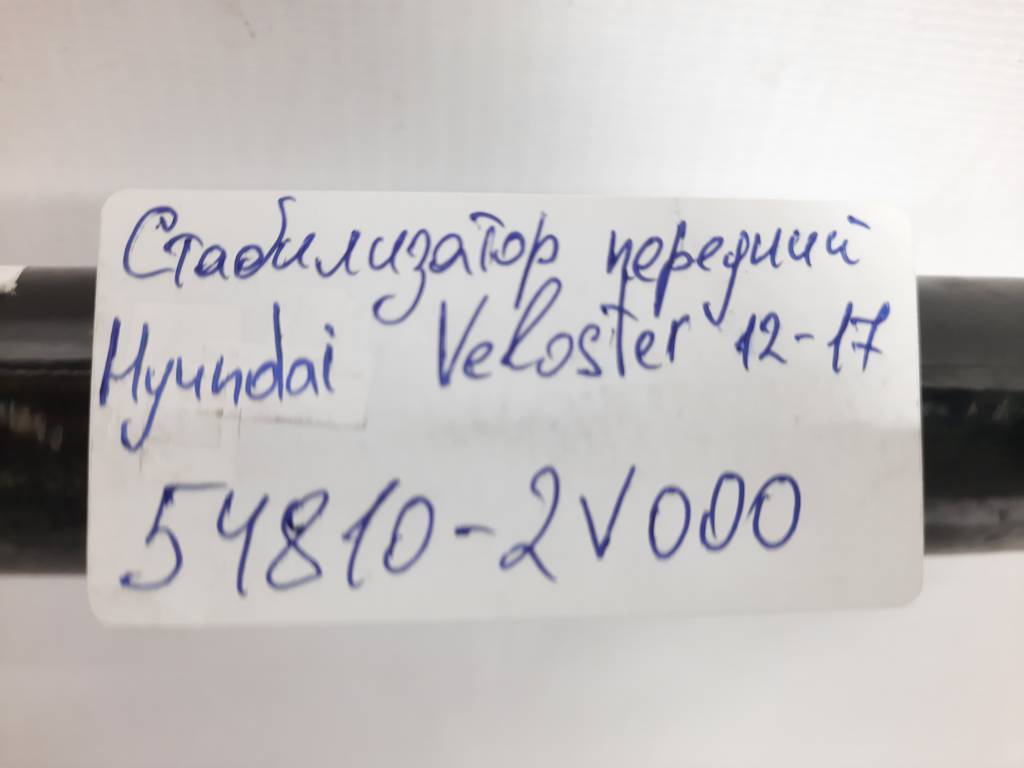 Стабилизатор передний
Hyundai Veloster 12-17
54810-2V000